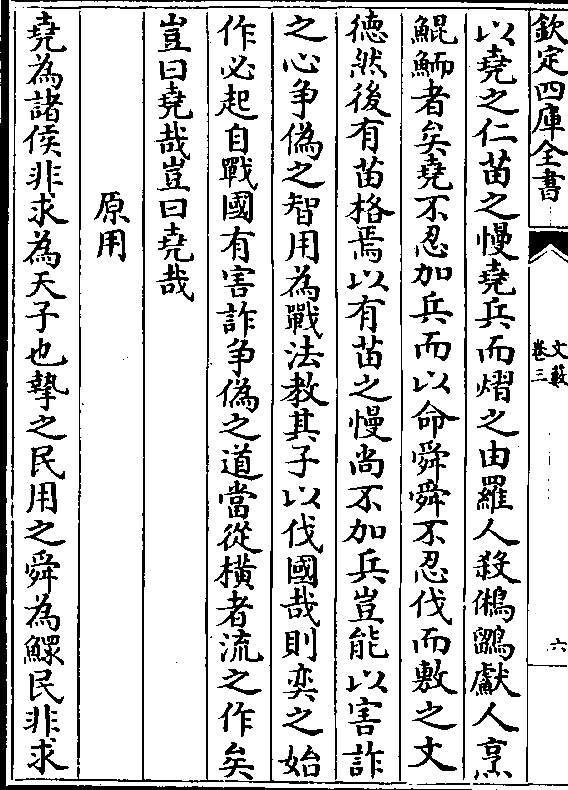 欽定四庫全書
文藪
卷三
六
以堯之仁苗之慢堯兵而熠之由羅人殺鵂鶹獻人烹
鯤鮞者矣堯不忍加兵而以命舜舜不忍伐而敷之文
德然後有苗格焉以有苗之慢尚不加兵豈能以害詐
之心争偽之智用為戰法教其子以伐國哉則奕之始
作必起自戰國有害詐争偽之道當從横者流之作矣
豈曰堯哉豈曰堯哉
原用
堯為諸侯非求為天子也摯之民用之舜為鰥民非求